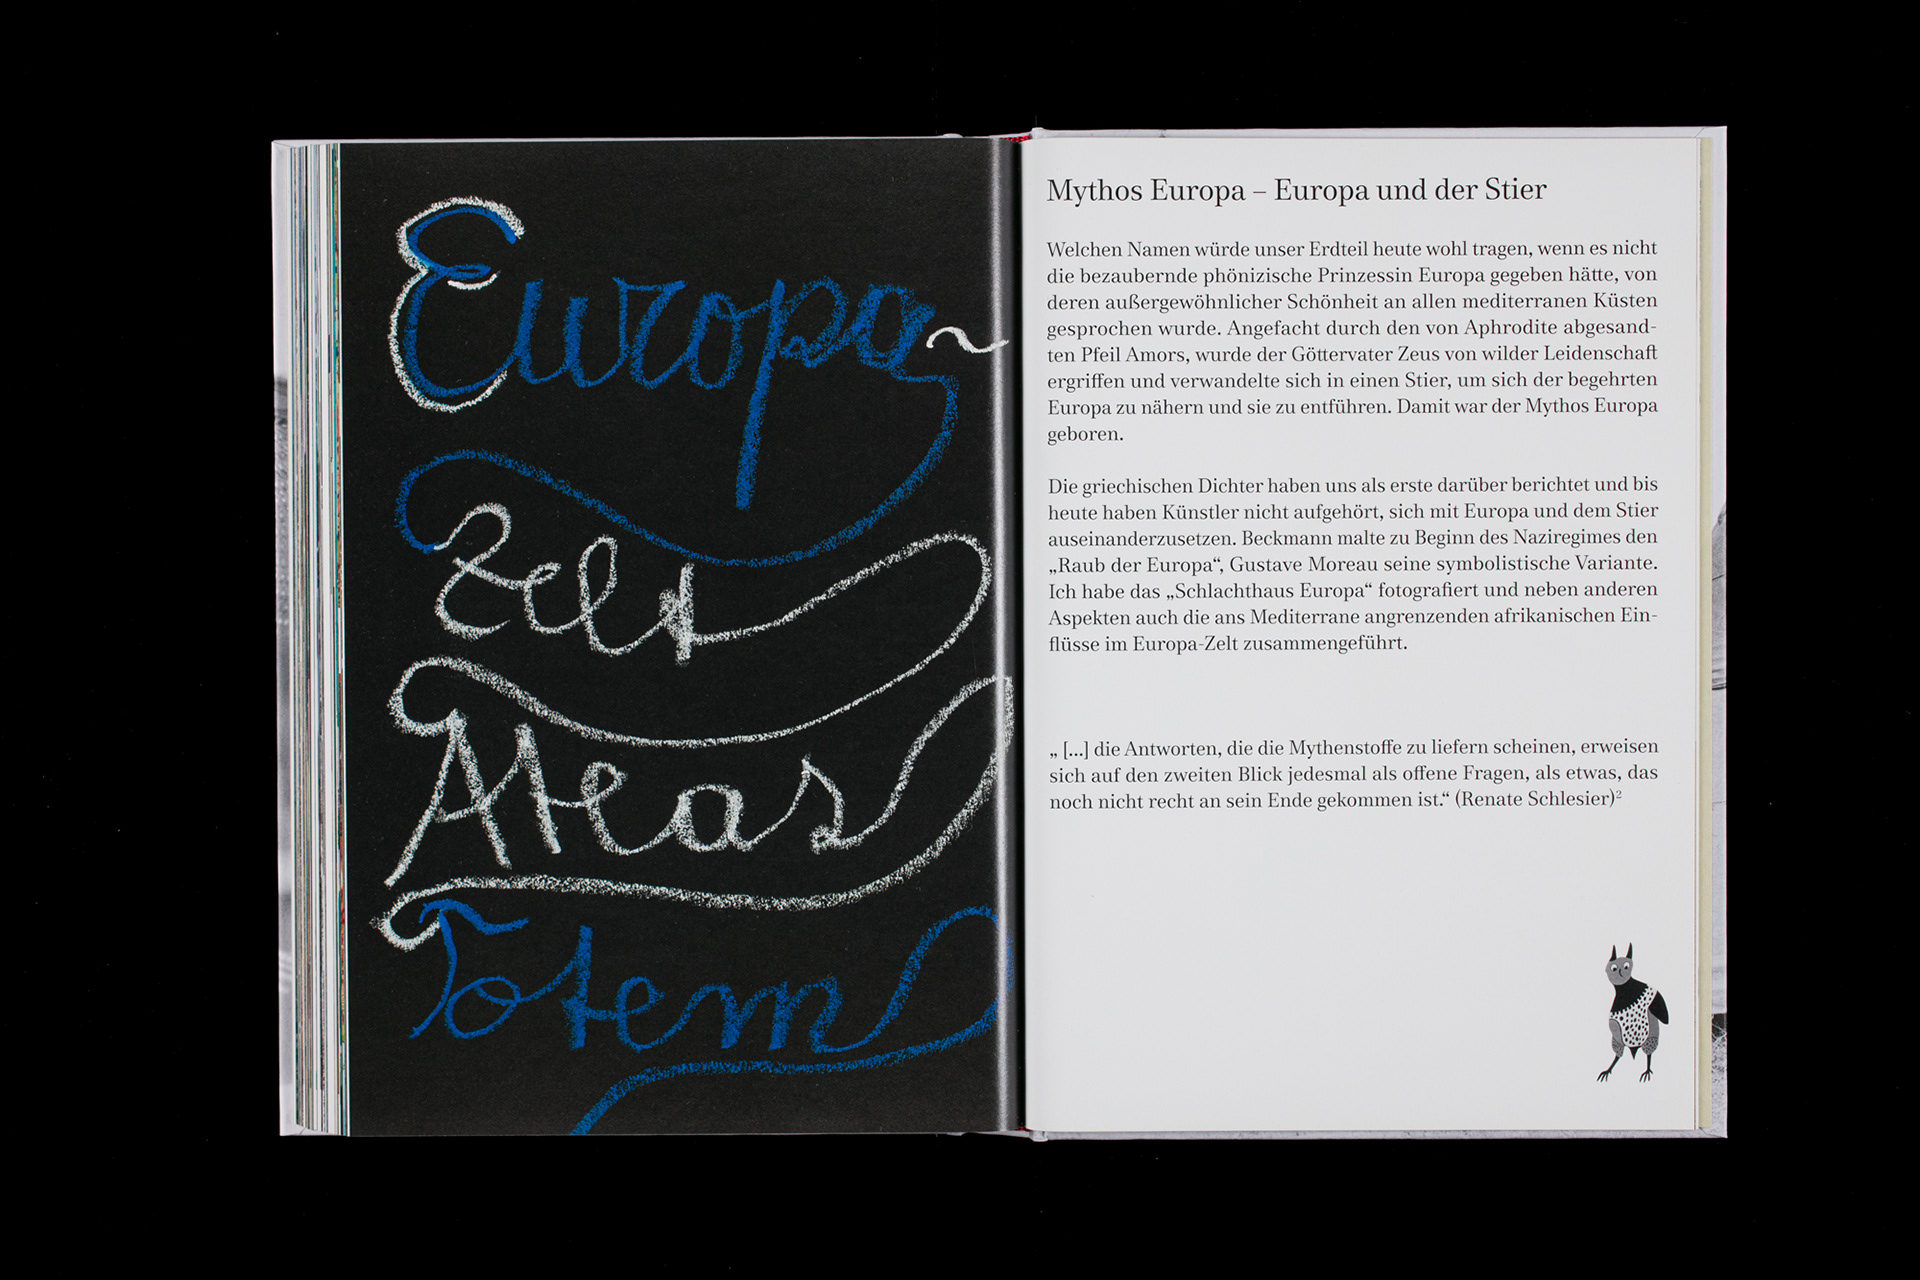 Europa~
Zelt
Atlas
Totem
Mythos Europa – Europa und der Stier
Welchen Namen würde unser Erdteil heute wohl tragen, wenn es nicht
die bezaubernde phönizische Prinzessin Europa gegeben hätte, von
deren außergewöhnlicher Schönheit an allen mediterranen Küsten
gesprochen wurde. Angefacht durch den von Aphrodite abgesand-
ten Pfeil Amors, wurde der Göttervater Zeus von wilder Leidenschaft
ergriffen und verwandelte sich in einen Stier, um sich der begehrten
Europa zu nähern und sie zu entführen. Damit war der Mythos Europa
geboren.
Die griechischen Dichter haben uns als erste darüber berichtet und bis
heute haben Künstler nicht aufgehört, sich mit Europa und dem Stier
auseinanderzusetzen. Beckmann malte zu Beginn des Naziregimes den
„Raub der Europa“, Gustave Moreau seine symbolistische Variante.
Ich habe das „Schlachthaus Europa“ fotografiert und neben anderen
Aspekten auch die ans Mediterrane angrenzenden afrikanischen Ein-
flüsse im Europa-Zelt zusammengeführt.
„ [...] die Antworten, die die Mythenstoffe zu liefern scheinen, erweisen
sich auf den zweiten Blick jedesmal als offene Fragen, als etwas, das
noch nicht recht an sein Ende gekommen ist.“ (Renate Schlesier)²